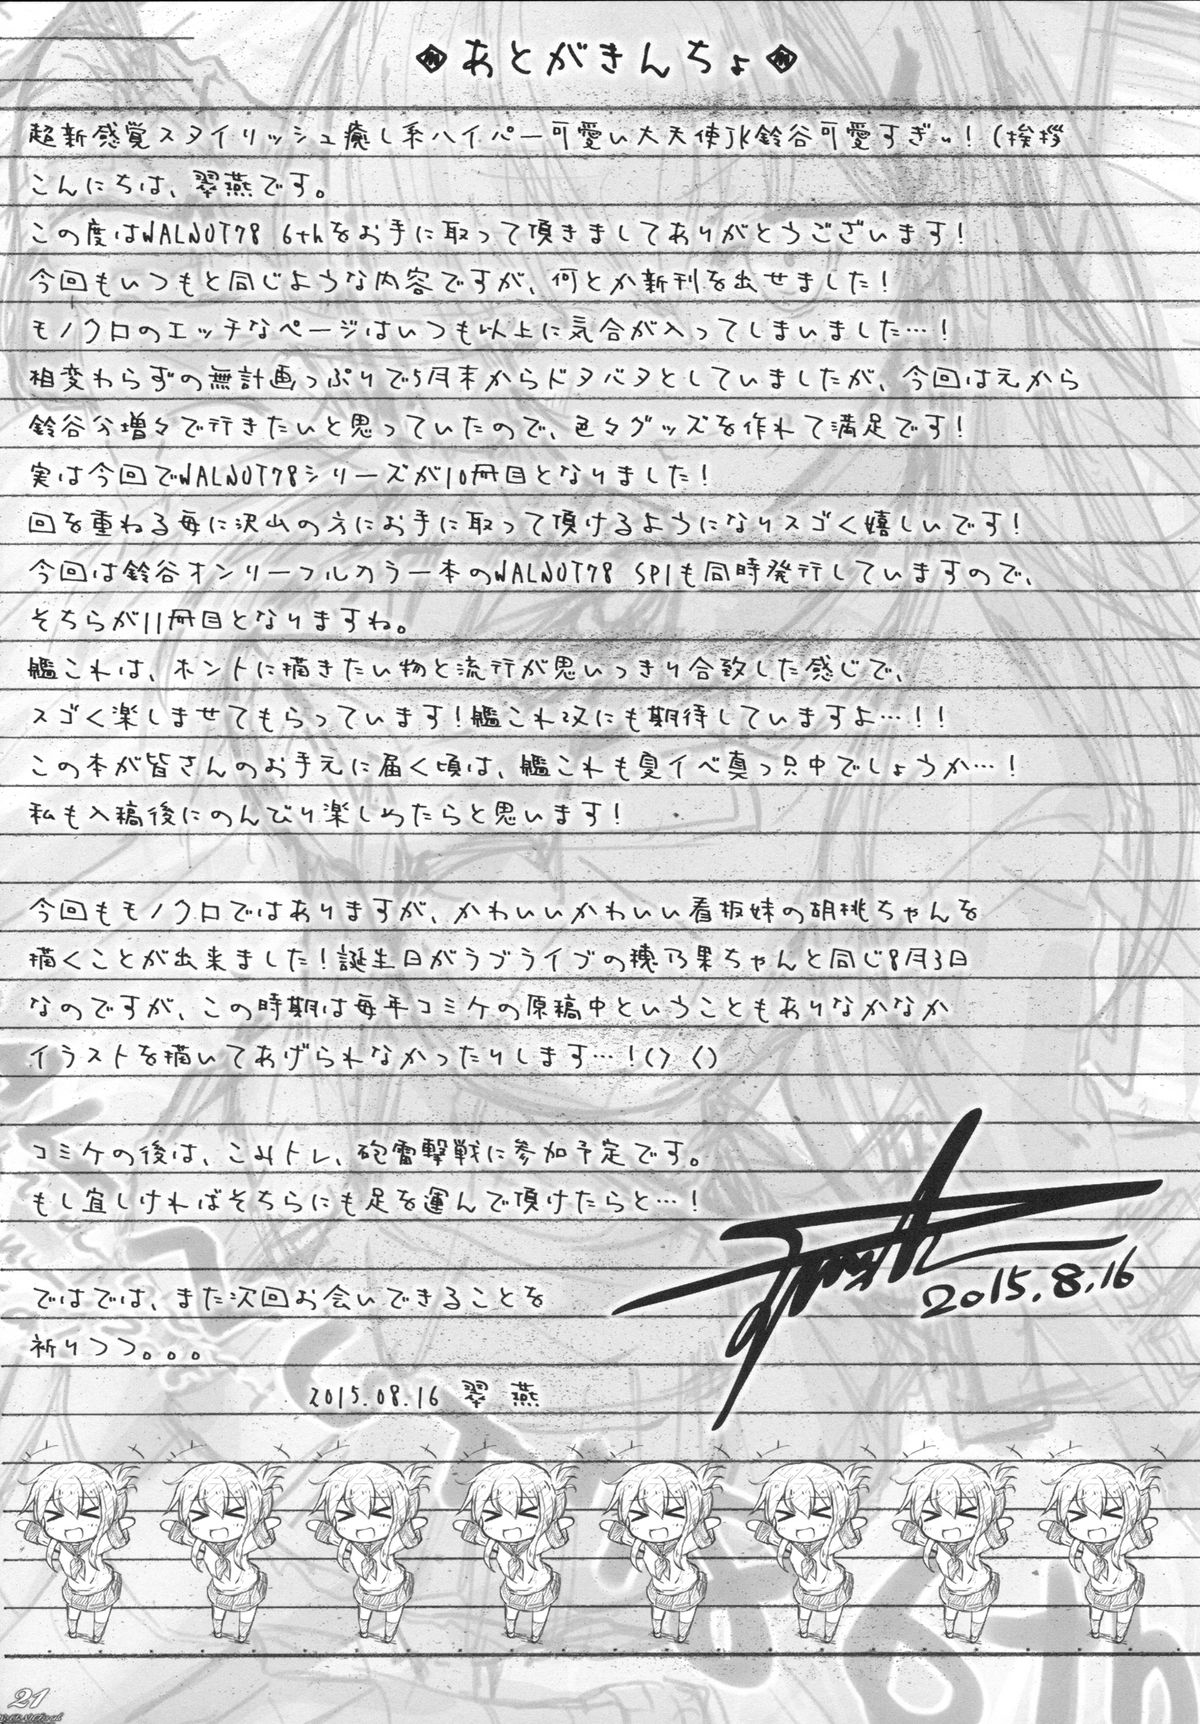 ◈あとがきんちょ◈
超新感覚スタイリッシュ癒し系ハイパー可愛い大天使JK鈴谷可愛すぎぃ!(挨拶
こんにちは、翠燕です。
この度はWALNOT78 6thをお手に取って頂きましてありがとうございます!
今回もいつもと同じような内容ですが、何とか新刊を出せました!
モノクロのエッチなページはいつも以上に気合が入ってしまいました…!
相変わらずの無計画っぷりで5月末からドタバタとしていましたが、今回は元から
鈴谷分増々で行きたいと思っていたので、色々グッズを作れて満足です!
実は今回でWALNOT78シリーズが10冊目となりました!
回を重ねる毎に沢山の方にお手に取って頂けるようになりスゴく嬉しいです!
今回は鈴谷オンリーフルカラー本のWALNOT78 SP1も同時発行していますので、
そちらが11冊目となりますね。
艦これは、ホントに描きたい物と流行が思いっきり合致した感じで、
スゴく楽しませてもらっています!艦これ改にも期待していますよ…!!
この本が皆さんのお手元に届く頃は、艦これも夏イベ真っ只中でしょうか…!
私も入稿後にのんびり楽しめたらと思います!
今回もモノクロではありますが、かわいいかわいい看板妹の胡桃ちゃんを
描くことが出来ました!誕生日がラブライブの穂乃果ちゃんと同じ8月3日
なのですが、この時期は毎年コミケの原稿中ということもありなかなか
イラストを描いてあげられなかったりします…!() ()
コミケの後は、こみトレ、砲雷撃戦に参加予定です。
もし宜しければそちらにも足を運んで頂けたらと…!
2015.8.16
ではでは、また次回お会いできることを
祈りつつ。。。
2015.08.16 翠 燕
6th
21